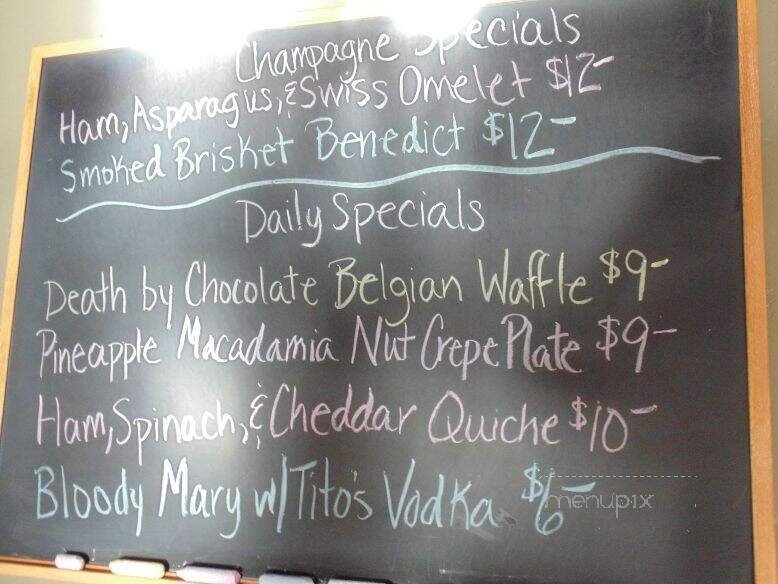 Champagne Specials
Ham, Asparagus, & Swiss Omelet $12-
Smoked Brisket Benedict $12-
Daily Specials
Death by Chocolate Belgian Waffle $9-
Pineapple Macadamia Nut Crepe Plate $9-
Ham, Spinach, & Cheddar Quiche $10-
Bloody Mary w/ Tito's Vodka $6-
menupix